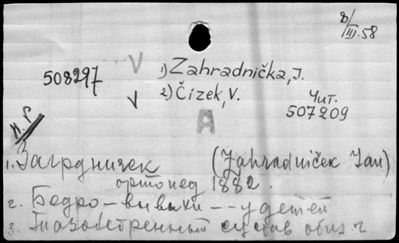 8/III.58
508297
V 1) Zahradnička, J.
V 2) Čízek, V.
Чит.
507209
А
н. р
1. Загрдничек (Zahradniček Jan)
ортопед 1882.
2. Бедро - вывихи -- у детей
3. Тазобедренный сустав